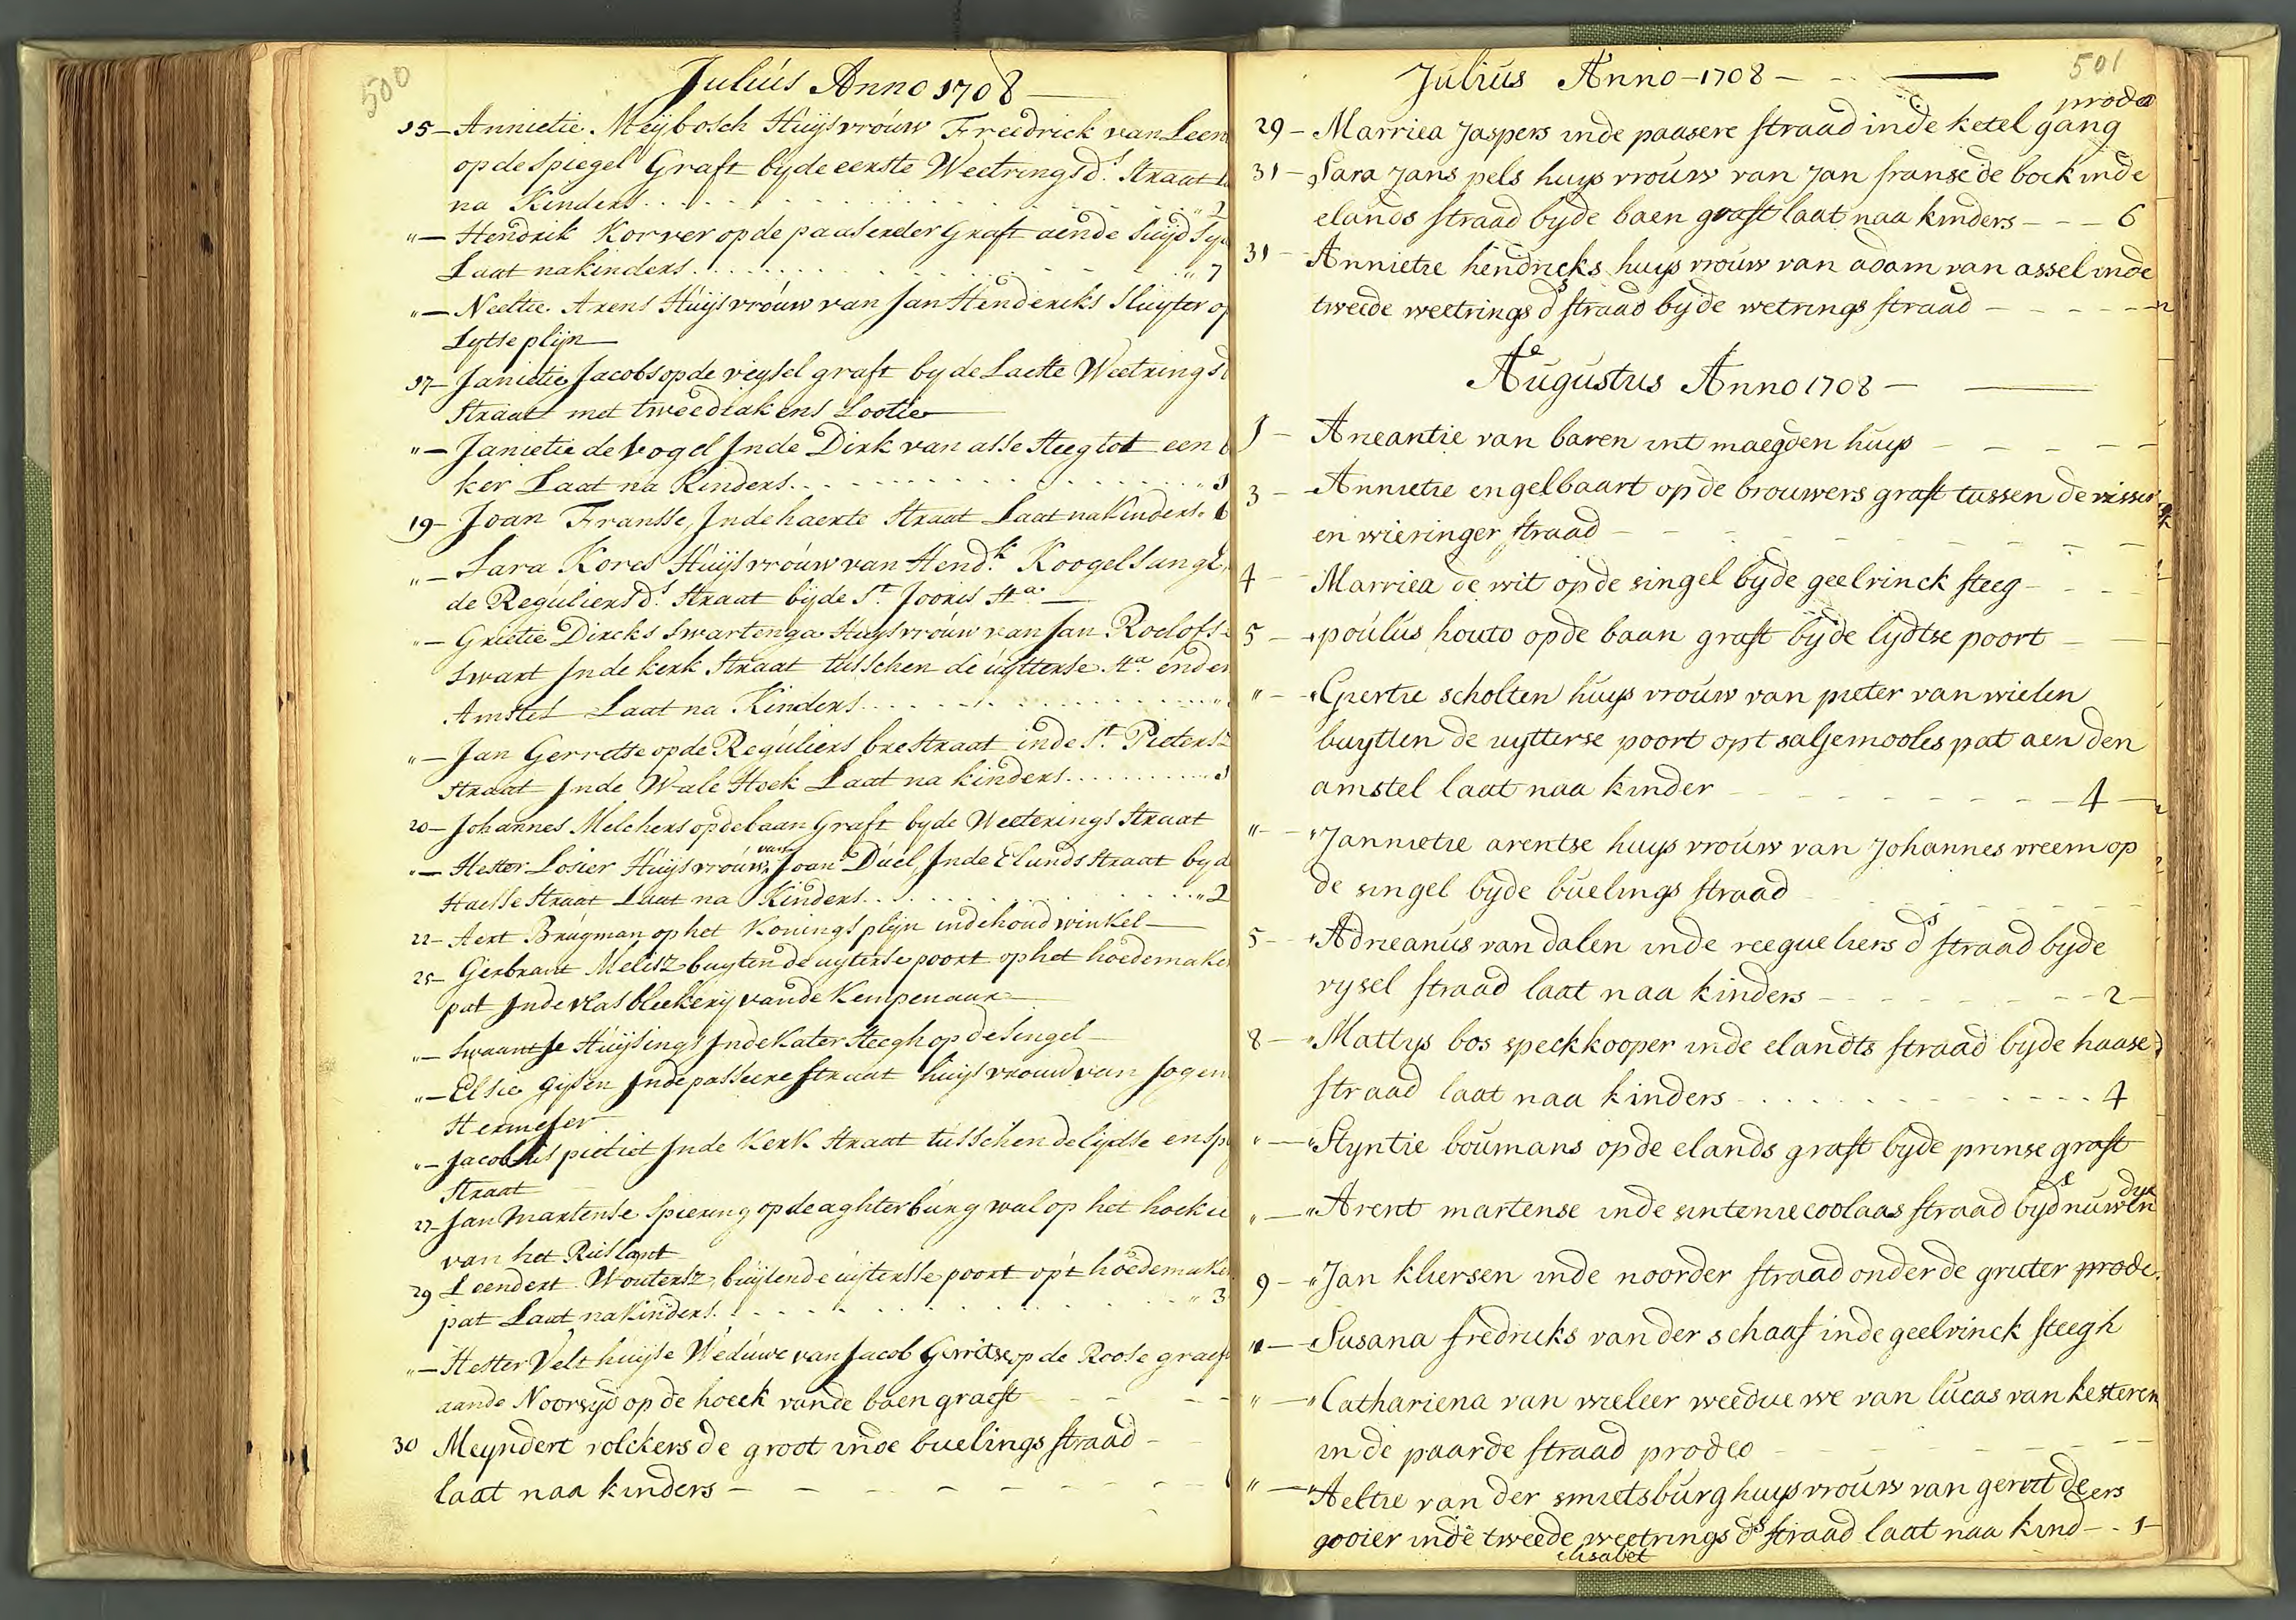 500
Juliús Anno 1708
15 - Annietie Meijbosch Húijsvróuw Freedrick van Leen
op de Spiegel Graft bij de eerste Weetrings d.s Straat
na Kinders 2
" - Hendrik Korver op de paaserder Graft aende Suijd Sy
Laat na kinders " 7
" - Neeltie Arens Húijsvróuw van Jan Henderiks Sluyter op
Lytse plijn
17 - Janietie Jacobs op de reysel graft by de Laeste Weetrings d
Straat met twee dtakens Lootie
" - Janietie de Vogel Jnde Dirk van asse Steeg tot een
ker Laat na Kinders " 3
19 - Joan Fransse, Jnde haerte Straat Laat na Kinders 6
" - Sara Kores Húijsvróuw van Hend.k Koogelsang
de Regúliers d.s Straat bij de S.t Jooris St.a
" - Grietie Dircks Swartenga Huysvróuw van Jan Roelofs
Swart Jnde kerk Straat tússchen de úytterse St.a ende
Amstel Laat na Kinders
" - Jan Gerretse op de Regúliers breStraat inde S.t Pieters
Straat Jnde Wale Hoek Laat na kinders
20 - Johannes Melchers op de laan Graft by de Weeterings Straat
" - Hester Losier Húijsvróuw van Joan Dúel, Jnde Elands Straat by d
Haesse Straat Laat na Kinders " 2
22 - Aert Brúgman op het Konings plijn inde houd winkel
25 - Gerbrant Melisz buyten de uyterse poort op het hoedemake
pat Jnde vlas bleekerij vande Kempenaar
" - Swaantje Húijsings Jnde Kater Steegh op de Singel
" - Elsie Gijsen Jnde passeere straat huijsvrouw van Jogem
Hermeser
" - Jacobus pietiet Jnde Kerk Straat tússchen de lijdse en sp
Straat
27 - Jan Martense Spiering op de aghterbúrg wal op het hoekie
van het Rúslant
29 Leendert Woutersz, buijten de úijtersse poort op't hoedemake
pat Laat na kinders " 3
" - Hester Velthuijse Wedúwe van Jacob Gerritse op de Roose graeft
aande Noorsijd op de hoeck vande baen graeft
30 Meyndert rolckers de groot inde buelings straad
laat naa kinders
501
Julius Anno 1708
prodeo
29 - Marriea Jaspers inde paasere straad inde ketel gang
31 - Sara Jans pels huys vrouw van Jan franse de bock inde
elands straad byde baen graft laat naa kinders 6
31 - Annietie hendricks huys vrouw van adam van assel inde
tweede weetrings d.s straad byde wetrings straad
Augustus Anno 1708
1 - Aneantie van baren int maegden huys
3 - Annietie engelbaart op de brouwers graft tussen de visser
en wieringer straad
4 - Marriea de wit op de singel byde geelvinck steeg
5 - poulus houto op de baan graft byde lydtse poort
" - Geertie scholten huys vrouw van pieter van wielen
buytten de uytterse poort opt saljemooles pat aen den
amstel laat naa kinder 4
" - Jannietie arentse huys vrouw van Johannes vreem op
de singel byde buelings straad
5 - Adrieanus van dalen inde reeguliers d.s straad byde
rysel straad laat naa kinders 2
8 - Mattys bos speckkooper inde elandts straad byde haase
straad laat naa kinders 4
" - Styntie boumans op de elands graft byde prinse graft
" - Arent martense inde sinteniecoolaas straad byde nuwen
dyk
9 - Jan kliersen inde noorder straad onder de gruter prode
" - Susana fredricks van der schaaf inde geelvinck steegh
" - Cathariena van wieleer weeduewe van lucas van kesteren
inde paarde straad prodeo
" - Aeltie van der smietsburg huys vrouw van gerrit de
gooier inde tweede weetrings d.s straad laat naa kinders 1
elisabet